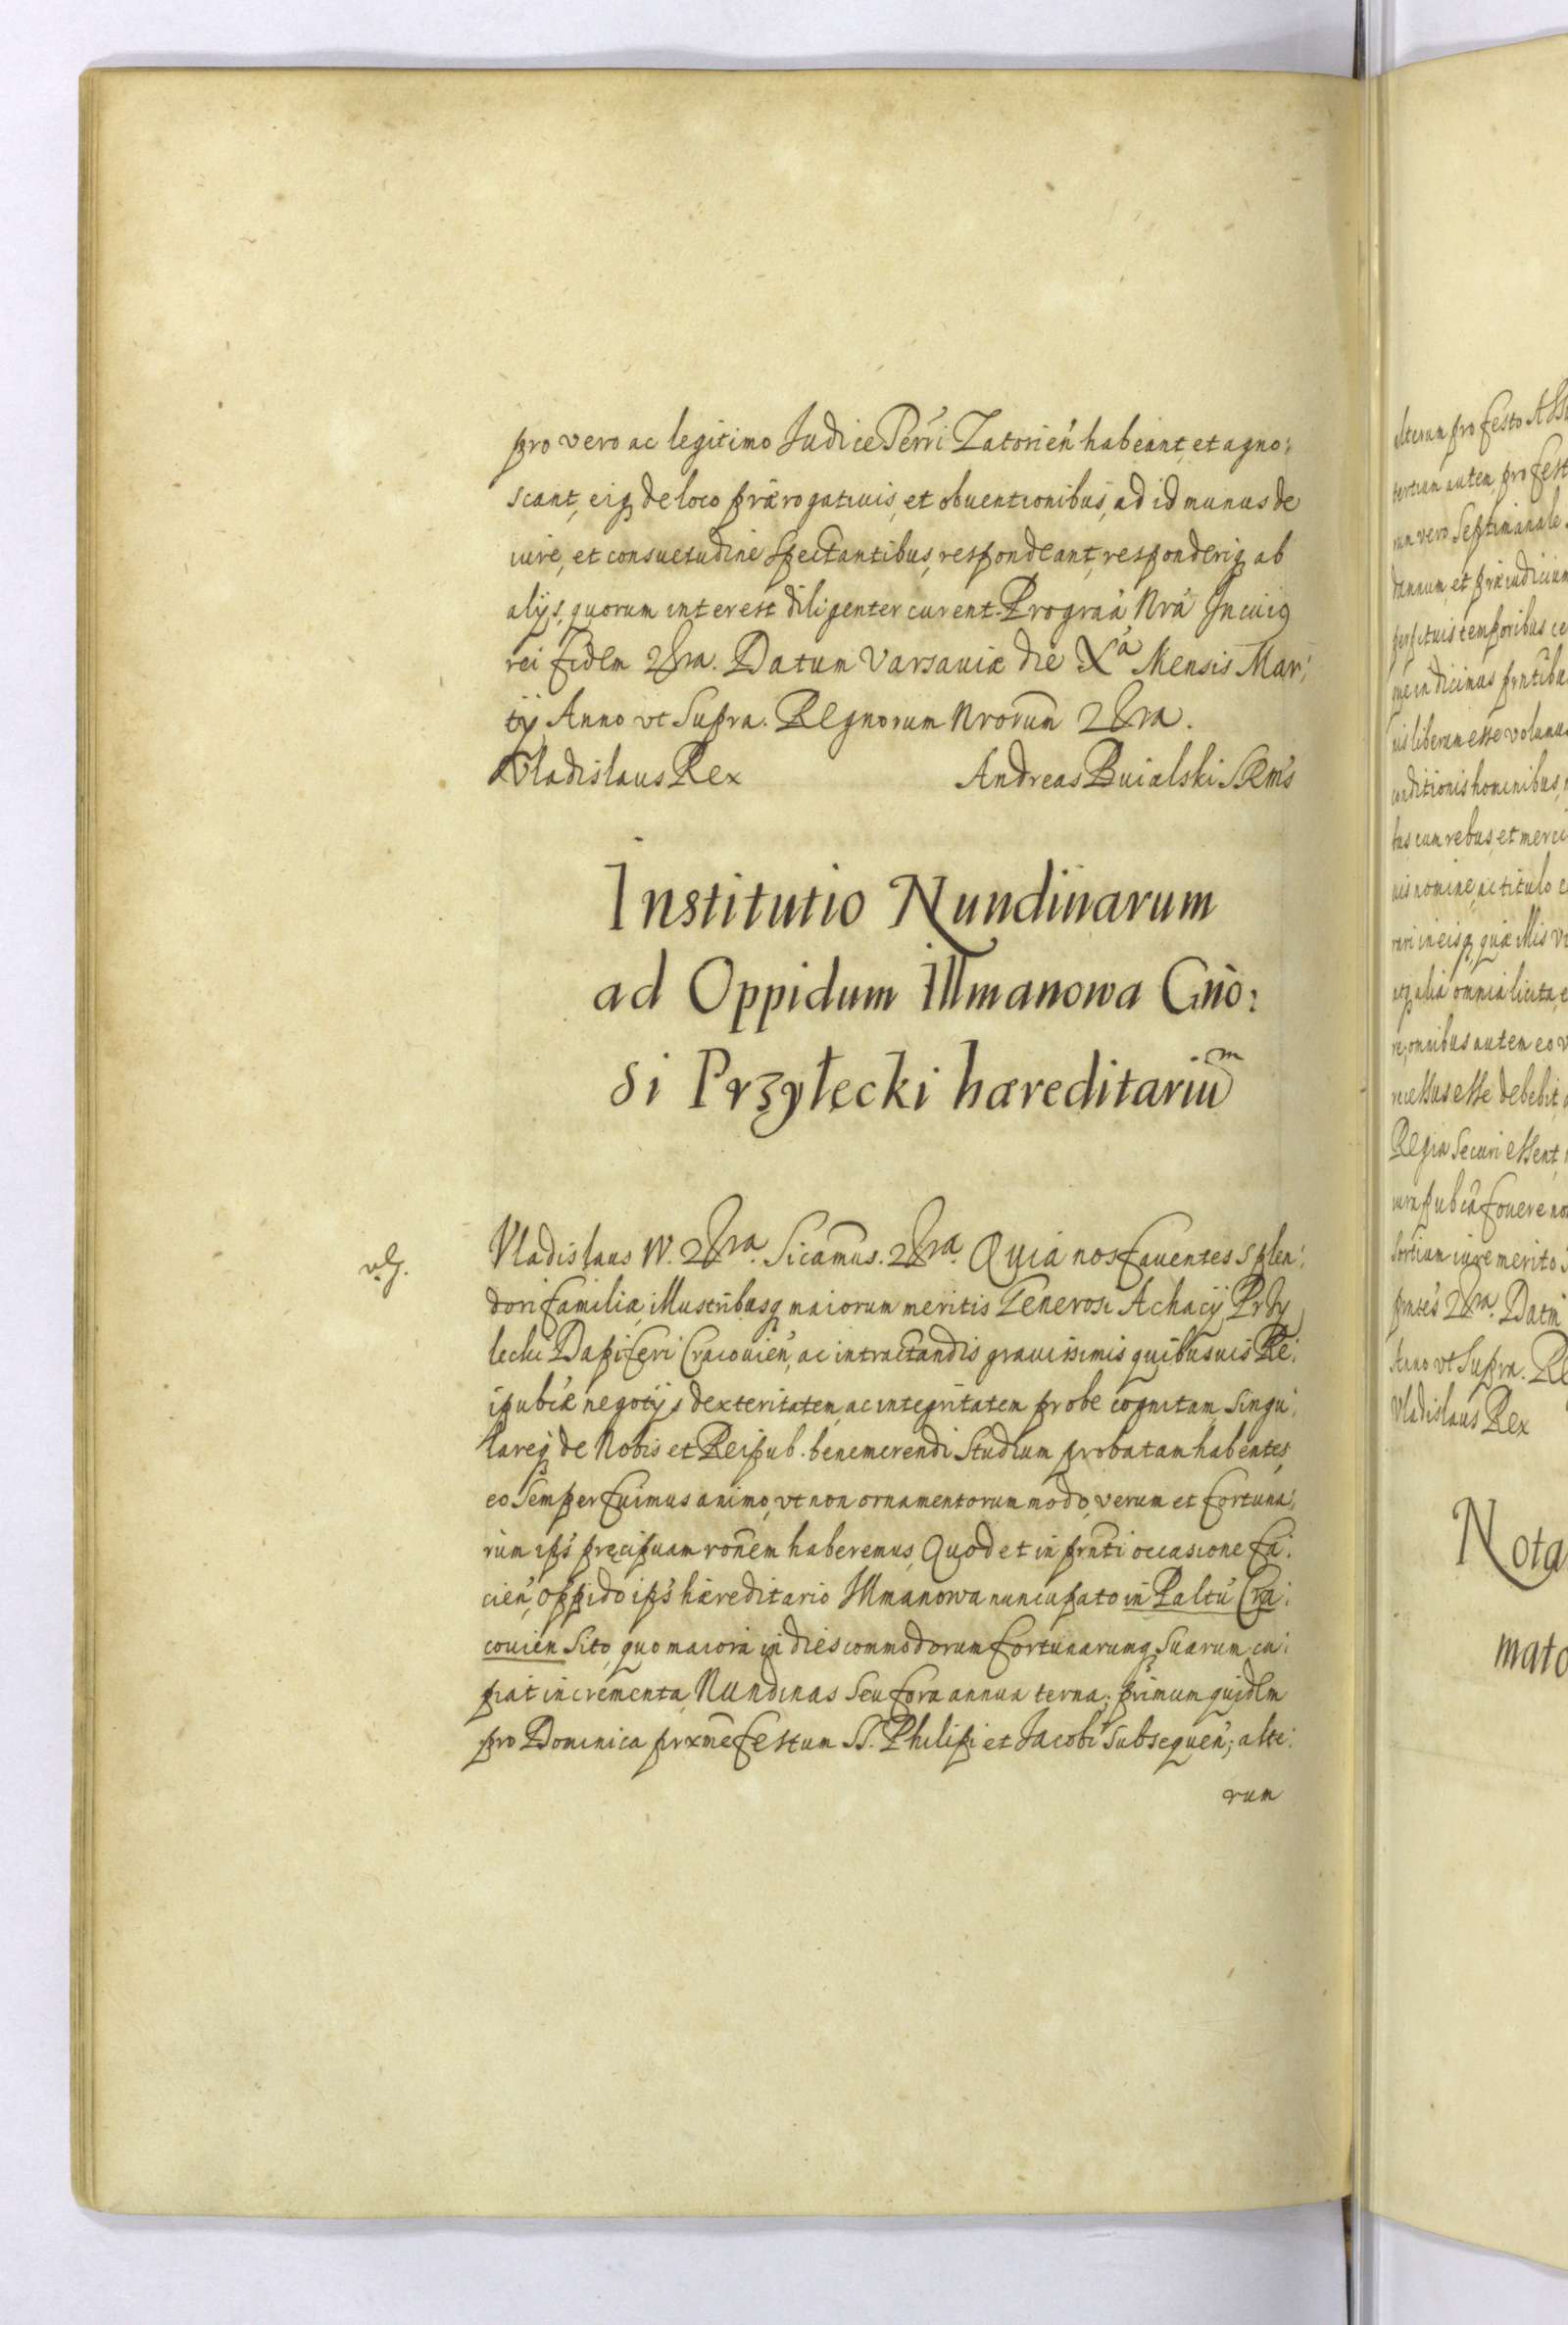 pro vero ac legitimo Judice Terri Zatorień habeant et agno:
scant, eiq de loco prærogativis, et obventionibus, ad id munus de
iure, et consuetudine spectantibus, respondeant, responderiq ab
alijs, quorum interest diligenter curent. Pro graā Nrā In cuiq
rei fidem &ra. Datum Varsaviæ die Xa Mensis Mar:
tij Anno vt supra. Regnorum Nrorum &ra.
Vladislaus Rex Andreas Buialski SRMs
Institutio Nundinarum
ad Oppidum Illmanowa Gno:
si Przyłęcki hæreditarium
Vladislaus IV. &ra. Sicamus. &ra. Quia nos faventes splen:
dori familiæ, illustribusq maiorum meritis Generosi Achacij Przy
lecki Dapiferi Cracovień, ac in tractandis gravissimis quibusvis Re:
ipubcæ negotijs dexteritatem, ac integritatem probe cognitam, singu:
lareq de Nobis et Reipub. benemerendi studium probatam habentes,
eo semper fuimus animo, vt non ornamentorum modo, verum et fortuna:
rum ips precipuam ronem haberemus, Quod et in prnti occasione fa:
cień, oppido ips hæreditario Illmanowa nuncupato in Paltu Cra:
covień sito, quo maiora in dies commodorum fortunarumq suarum ca:
piat incrementa, Nundinas seu fora annua terna; primum quidem
pro Dominica prxme festum SS. Philipi et Jacobi subsequeń; alte:
rum
alterum pro festo
tertium autem, pro fest
vero septimanale
damnum, et præiudicium
perpetuis temporibus ce
indicimus prntibus
liberum esse volumus
conditionis hominibus,
cum rebus, et merci
nomine, ac titulo
in eisq, quæ illis
alia omnia licita, e
omnibus autem eo
esse debebit,
Regia securi essent,
fovere
sortiam iure merito
prntes &ra. Datm
Anno vt supra. Re
Vladislaus Rex
Nota
mato